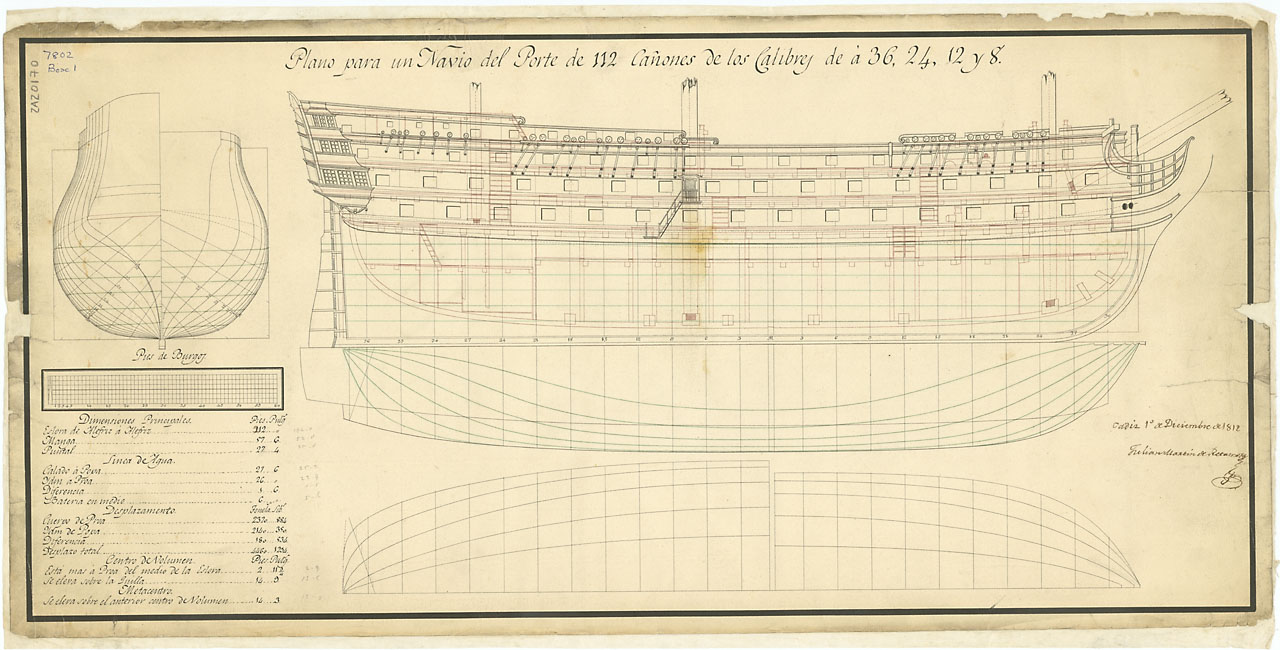 7802
Box 1
ZAZ0170
Plano para un Navio del Porte de 112 Cañones de los Calibres de à 36, 24, 12 y 8.
Pies de Burgos
Dimensiones Principales. Pies. Pulg.
Eslora de Alefriz à Alefriz 212
Manga 57 6
Puntal 27 4
Linea de Agua.
Calado à Popa 27 6
Ydm à Proa 26
Diferencia 1 6
Batería en medio 6
Desplazamento.
Cuerpo de Proa
Ydm de Popa
Diferencia
Desplazo total
Centro de Volumen Pies. Pulg.
Está mas à Proa del medio de la Eslora 2
Se eleva sobre la Quilla 14 9
Metacentro.
Se eleva sobre el anterior centro de Volumen 14 3
Cadiz 1º de Diciembre de 1812
Julian Martin de